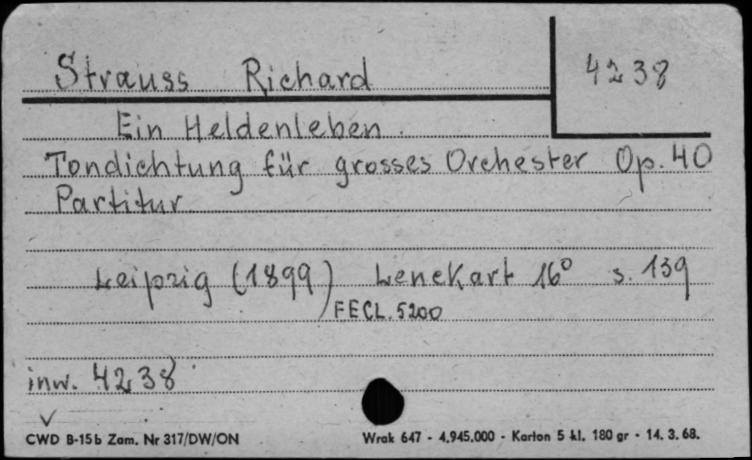 Strauss Richard 4238
Ein Heldenleben.
Tondichtung für grosses Orchester Op. 40
Partitur
Leipzig (1899) Lenckart 16° s. 139
FECL. 5200
inw. 4238
CWD B-15b Zam. Nr 317/DW/ON Wrak 647 - 4.945.000 - Karton 5 kl. 180 gr - 14. 3. 68.